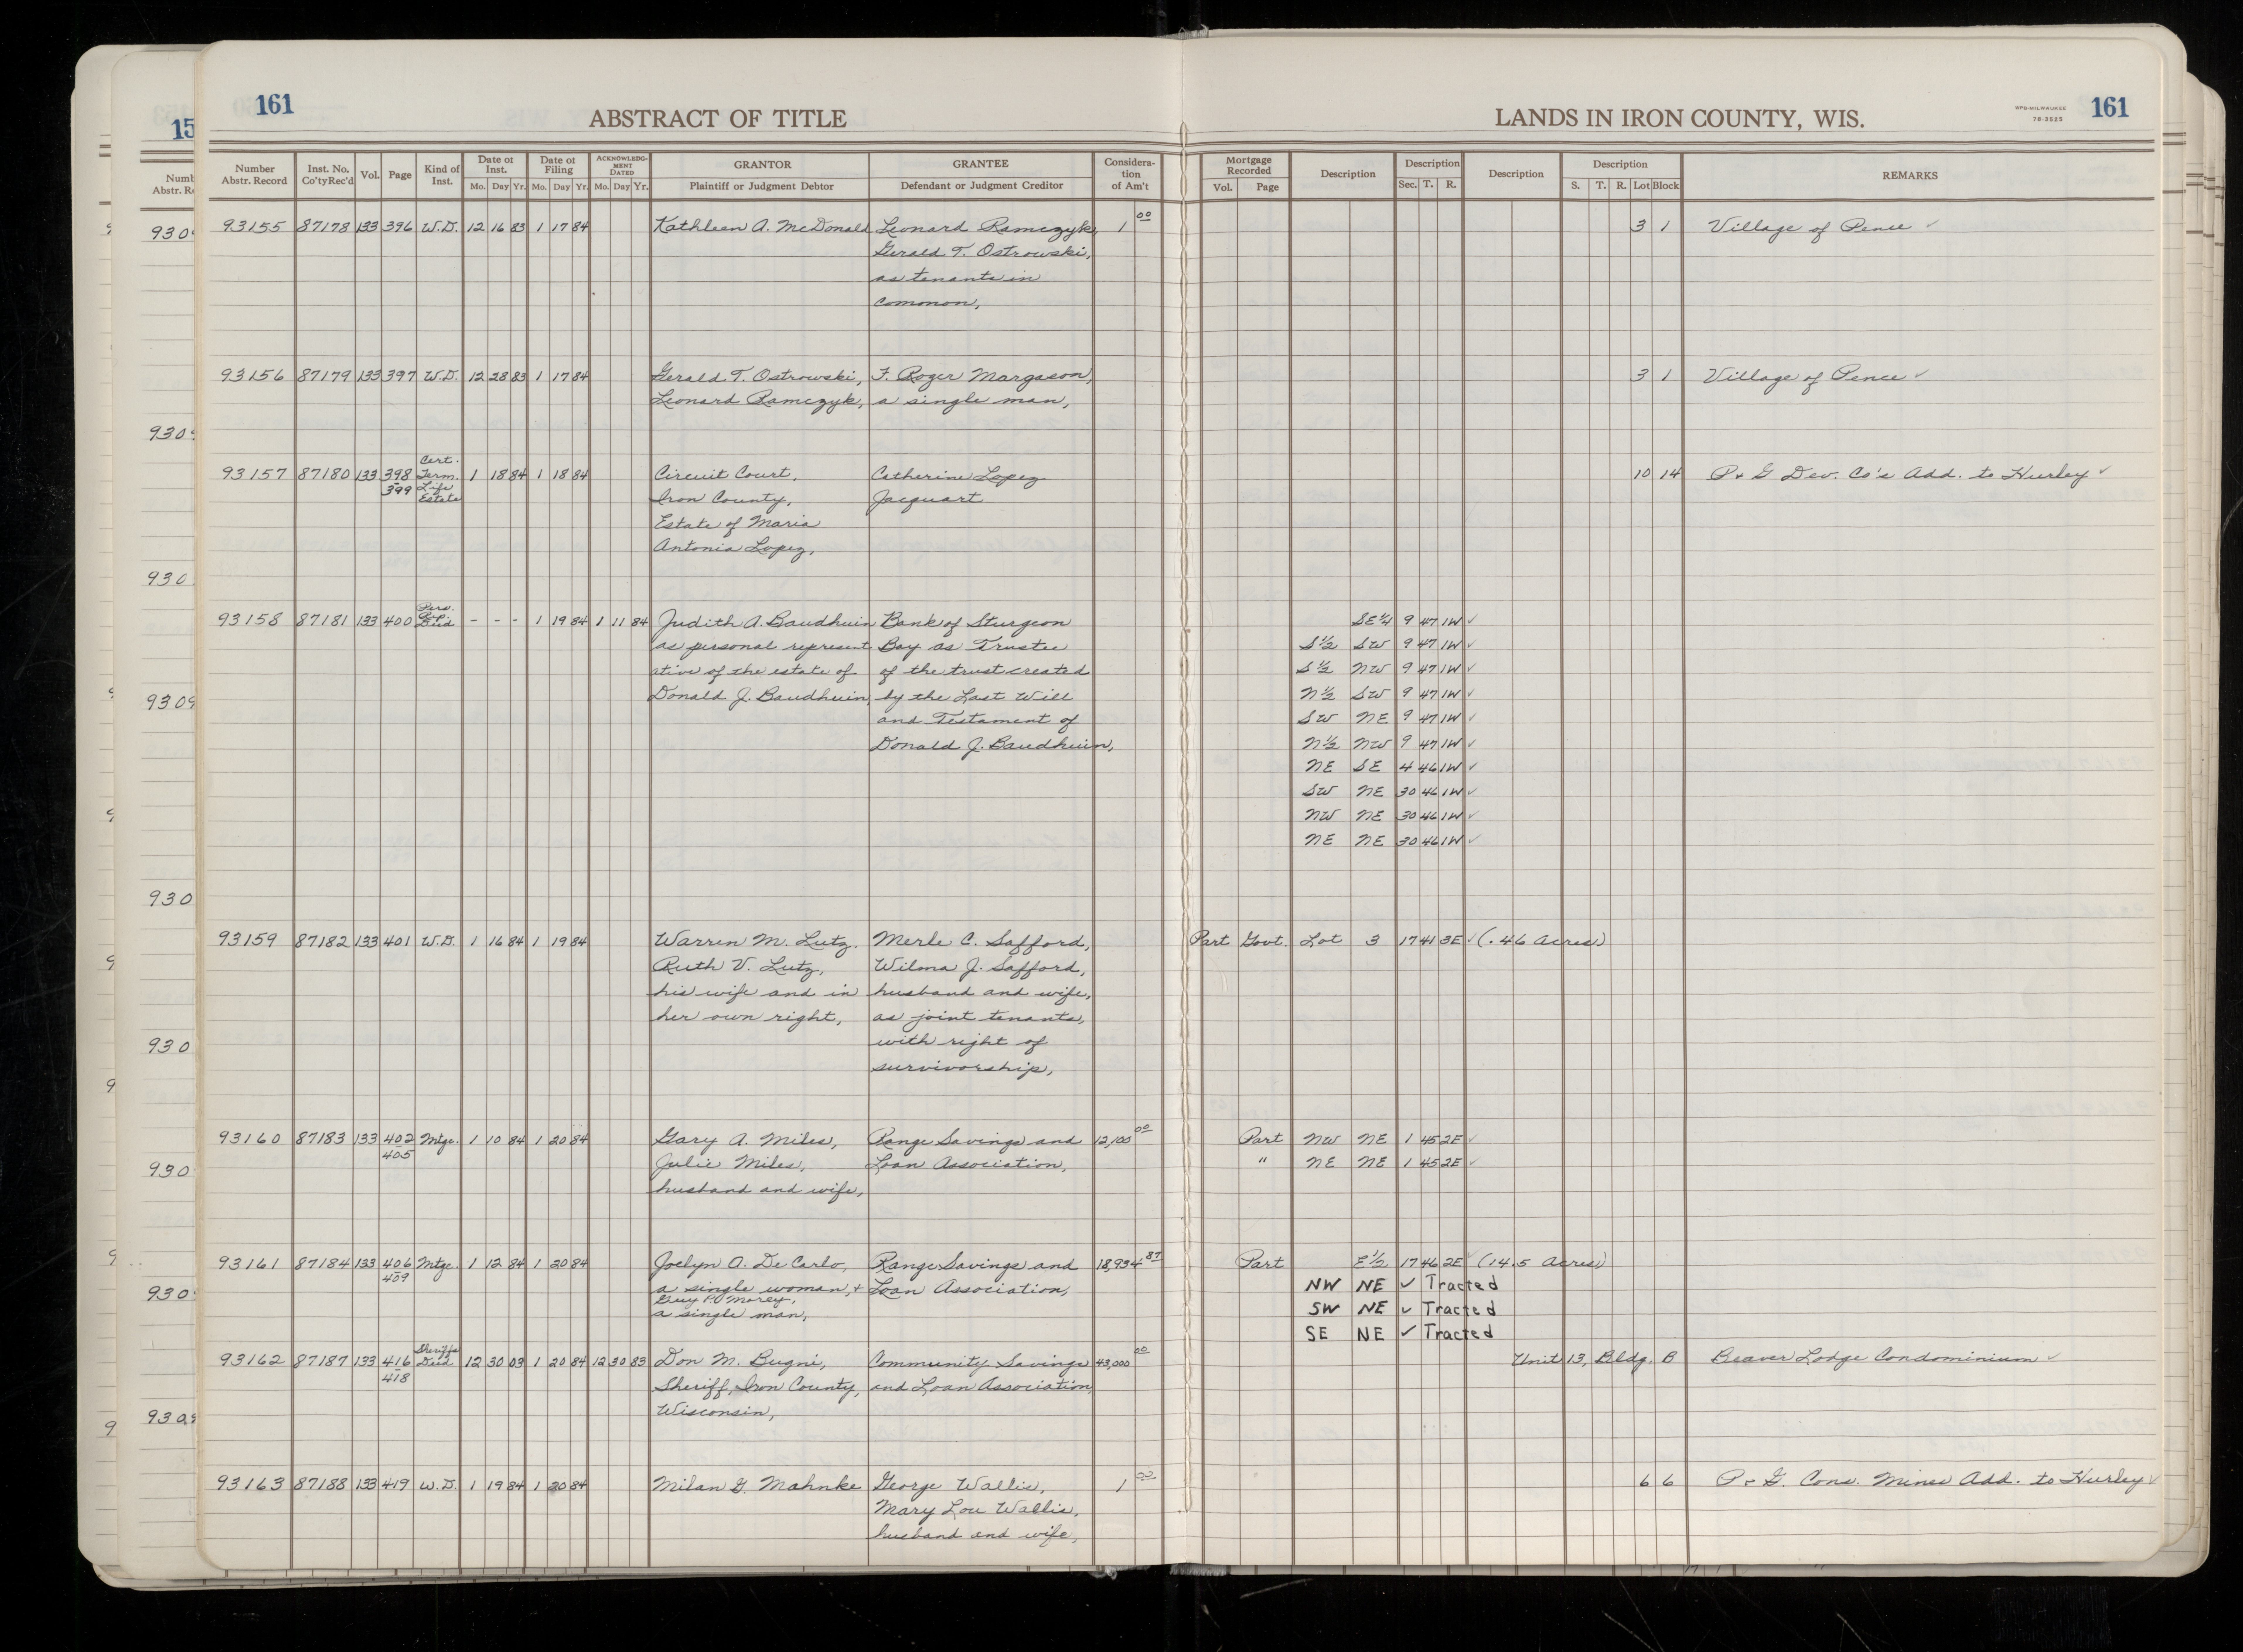 161
ABSTRACT OF TITLE
LANDS IN IRON COUNTY, WIS.
WPB-MILWAUKEE
78-3525
161
15
Number Abstr. Record Inst. No. Co'ty Rec'd Vol. Page Kind of Inst. Date of Inst. Mo. Day Yr. Date of Filing Mo. Day Yr. ACKNOWLEDG-MENT DATED Mo. Day Yr. GRANTOR Plaintiff or Judgment Debtor GRANTEE Defendant or Judgment Creditor Considera-tion of Am't Mortgage Recorded Vol. Page Description Description Sec. T. R. Description Description S. T. R. Lot Block REMARKS
93155 87178 133 396 W.D. 12 16 83 1 17 84 Kathleen A. McDonald Leonard Ramczyk, 1 00 3 1 Village of Pence ✓
Gerald T. Ostrowski,
as tenants in
common,
93156 87179 133 397 W.D. 12 28 83 1 17 84 Gerald T. Ostrowski, F. Roger Margason, 3 1 Village of Pence ✓
Leonard Ramczyk, a single man,
93157 87180 133 398-399 Cert. Term. Life Estate 1 18 84 1 18 84 Circuit Court, Catherine Lopez 10 14 P & G Dev. Co's Add. to Hurley ✓
Iron County, Jacquart
Estate of Maria
Antonia Lopez,
93158 87181 133 400 Pers. Rep. Deed - - - 1 19 84 1 11 84 Judith A. Baudhuin Bank of Sturgeon SE 1/4 9 47 1W ✓
as personal represent Bay as Trustee S 1/2 SW 9 47 1W ✓
ative of the estate of of the trust created S 1/2 NW 9 47 1W ✓
Donald J. Baudhuin, by the Last Will N 1/2 SW 9 47 1W ✓
and Testament of SW NE 9 47 1W ✓
Donald J. Baudhuin, N 1/2 NW 9 47 1W ✓
NE SE 4 46 1W ✓
SW NE 30 46 1W ✓
NW NE 30 46 1W ✓
NE NE 30 46 1W ✓
93159 87182 133 401 W.D. 1 16 84 1 19 84 Warren M. Lutz. Merle C. Safford, Part Govt. Lot 3 17 41 3E ✓ (.46 Acres)
Ruth V. Lutz, Wilma J. Safford,
his wife and in husband and wife,
her own right, as joint tenants,
with right of
survivorship,
93160 87183 133 402-405 Mtge. 1 10 84 1 20 84 Gary A. Miles, Range Savings and 12,100 00 Part NW NE 1 45 2E ✓
Julie Miles, Loan Association, " NE NE 1 45 2E ✓
husband and wife,
93161 87184 133 406-409 Mtge. 1 12 84 1 20 84 Joelyn A. De Carlo, Range Savings and 18,934 87 Part E 1/2 17 46 2E ✓ (14.5 Acres)
a single woman, + Loan Association, NW NE ✓ Tracted
Guy P. Morey,
a single man, SW NE ✓ Tracted
SE NE ✓ Tracted
93162 87187 133 416-418 Sheriffs Deed 12 30 03 1 20 84 12 30 83 Don M. Bugni, Community Savings 43,000 00 Unit 13, Bldg. B Beaver Lodge Condominium ✓
Sheriff, Iron County, and Loan Association,
Wisconsin,
93163 87188 133 419 W.D. 1 19 84 1 20 84 Milan G. Mahnke George Wallis, 1 00 6 6 P & G. Cons. Mines Add. to Hurley ✓
Mary Lou Wallis,
husband and wife,